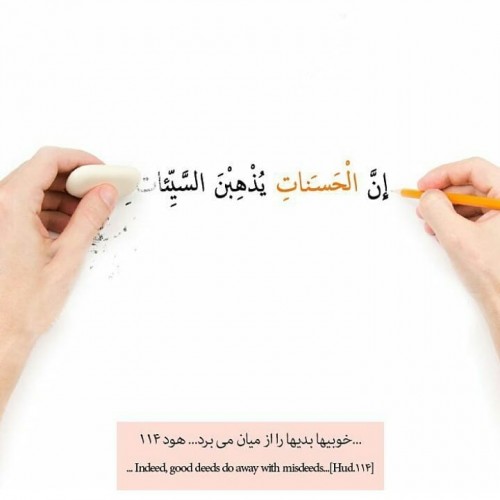 إِنَّ الْحَسَناتِ يُذْهِبْنَ السَّيِّئاتِ
...خوبیها بدیها را از میان می برد... هود ۱۱۴
... Indeed, good deeds do away with misdeeds...[Hud.۱۱۴]